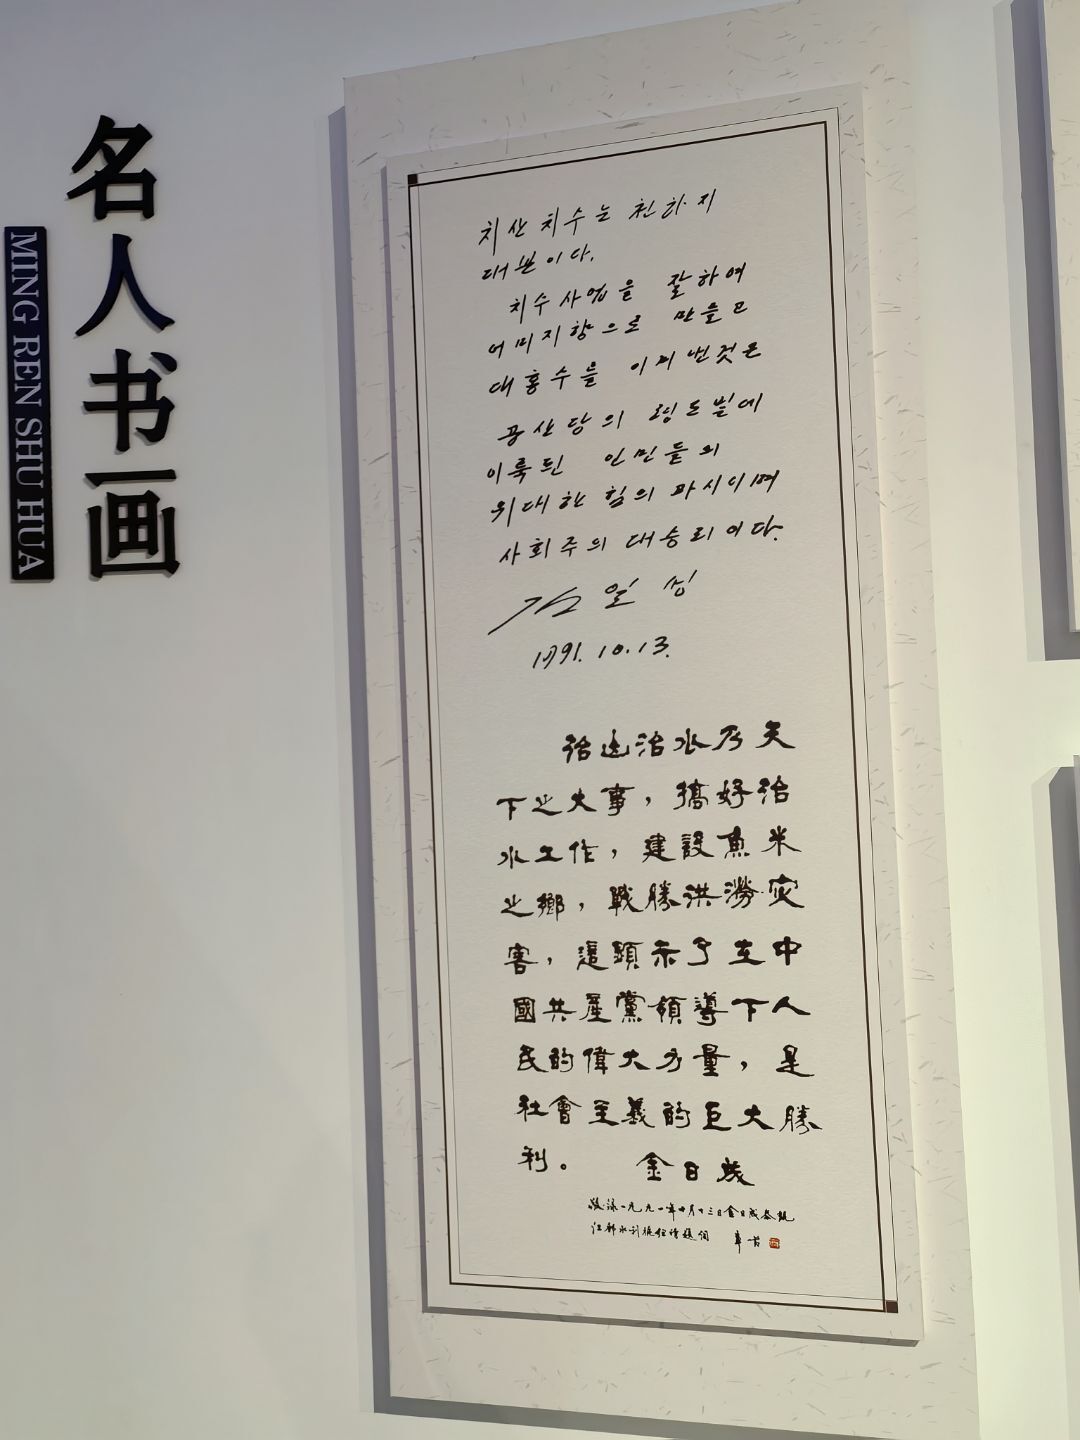 名人书画
MING REN SHU HUA
치산치수는 천하지
대본이다.
치수사업을 잘하여
어미지향으로 만들고
대홍수를 이겨낸것은
공산당의 령도밑에
이룩된 인민들의
위대한 힘의 과시이며
사회주의 대승리이다.
김일성
1991.10.13.
治山治水乃天
下之大事，搞好治
水工作，建設魚米
之鄉，戰勝洪澇灾
害，這顯示了在中
國共產黨領導下人
民的偉大力量，是
社會主義的巨大勝
利。 金日成
敬录一九九一年十月十三日金日成参觀
江都水利枢纽時題詞